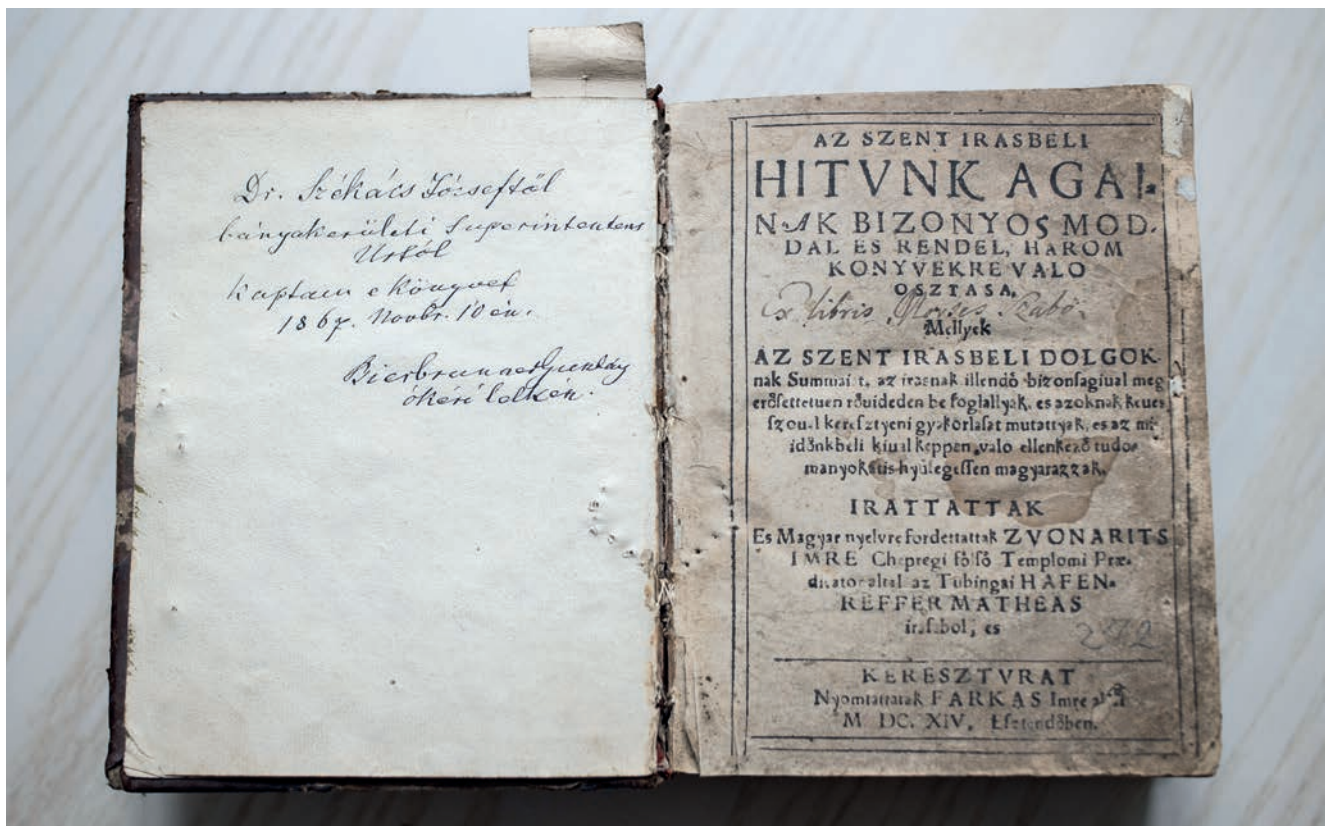 Dr. Székács Józseftől
bányakerületi Superintentens
Úrtól
kaptam e Könyvet
1867. Novbr. 10 én.
Bierbrunner Gusztáv
ókéri lelkész.
AZ SZENT IRASBELI
HITVNK AGAI-
NAK BIZONYOS MOD-
DAL ES RENDEL, HAROM
KONYVEKRE VALO
OSZTASA,
Ex libris Moyses Szabó.
Mellyek
AZ SZENT IRASBELI DOLGOK-
nak Summait, az irasnak illendő bizonsagiual meg
erősettetuen rőuideden be foglallyak, es azoknak keues
szoual keresztyeni gyakorlasat mutattyak, es az mi
időnkbeli kiual keppen valo ellenkező tudo-
manyokatis hyűlegessen magyarazzak.
IRATTATTAK
Es Magyar nyelvre fordettattak ZVONARITS
IMRE Chepregi főlső Templomi Præ-
dicator altal az Tubingai HAFEN-
REFFER MATHEAS
irasabol, es
282
KERESZTVRAT
Nyomtattatak FARKAS Imre altal
M DC. XIV. Esztendőben.